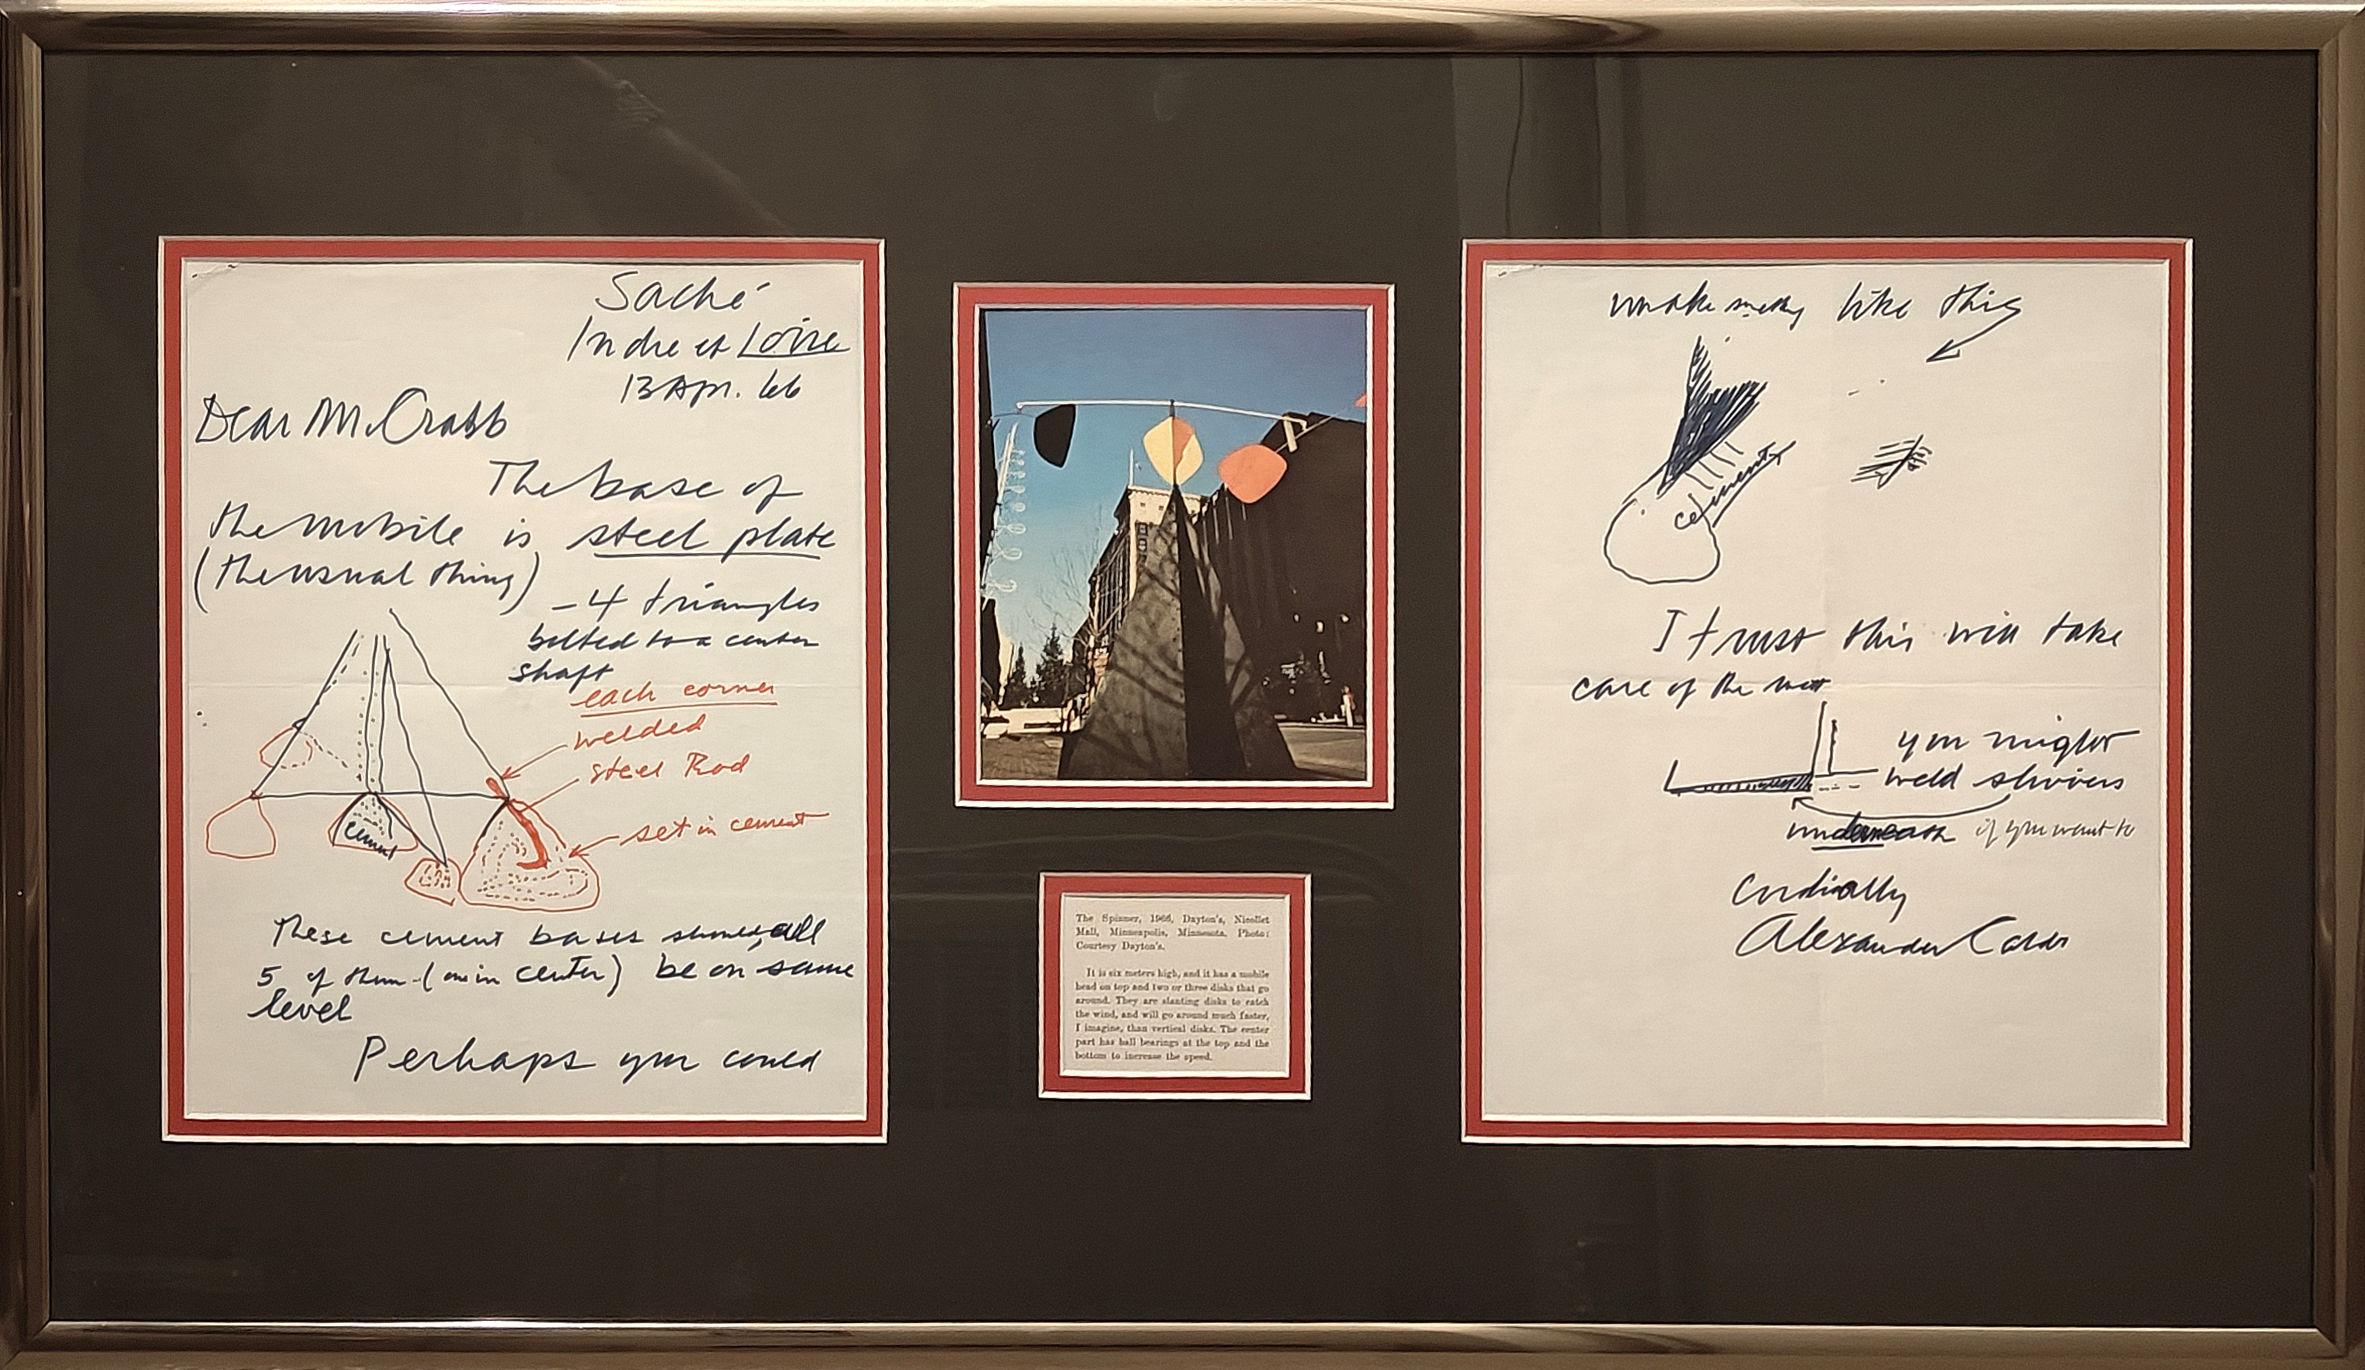 Saché
Indre et Loire
13 Apr. 66
Dear Mr. Crabb
The base of
the mobile is steel plate
(the usual thing)
- 4 triangles
bolted to a center
shaft
each corner
welded
steel Rod
set in cement
cement
These cement bases should, all
5 of them - (one in center) be on same
level
Perhaps you could
The Spinner, 1966, Dayton's, Nicollet
Mall, Minneapolis, Minnesota. Photo:
Courtesy Dayton's.
It is six meters high, and it has a mobile
head on top and two or three disks that go
around. They are slanting disks to catch
the wind, and will go around much faster,
I imagine, than vertical disks. The center
part has ball bearings at the top and the
bottom to increase the speed.
make like this
cement
I trust this will take
care of the
you might
weld slivers
underneath if you want to
Cordially
Alexander Calder